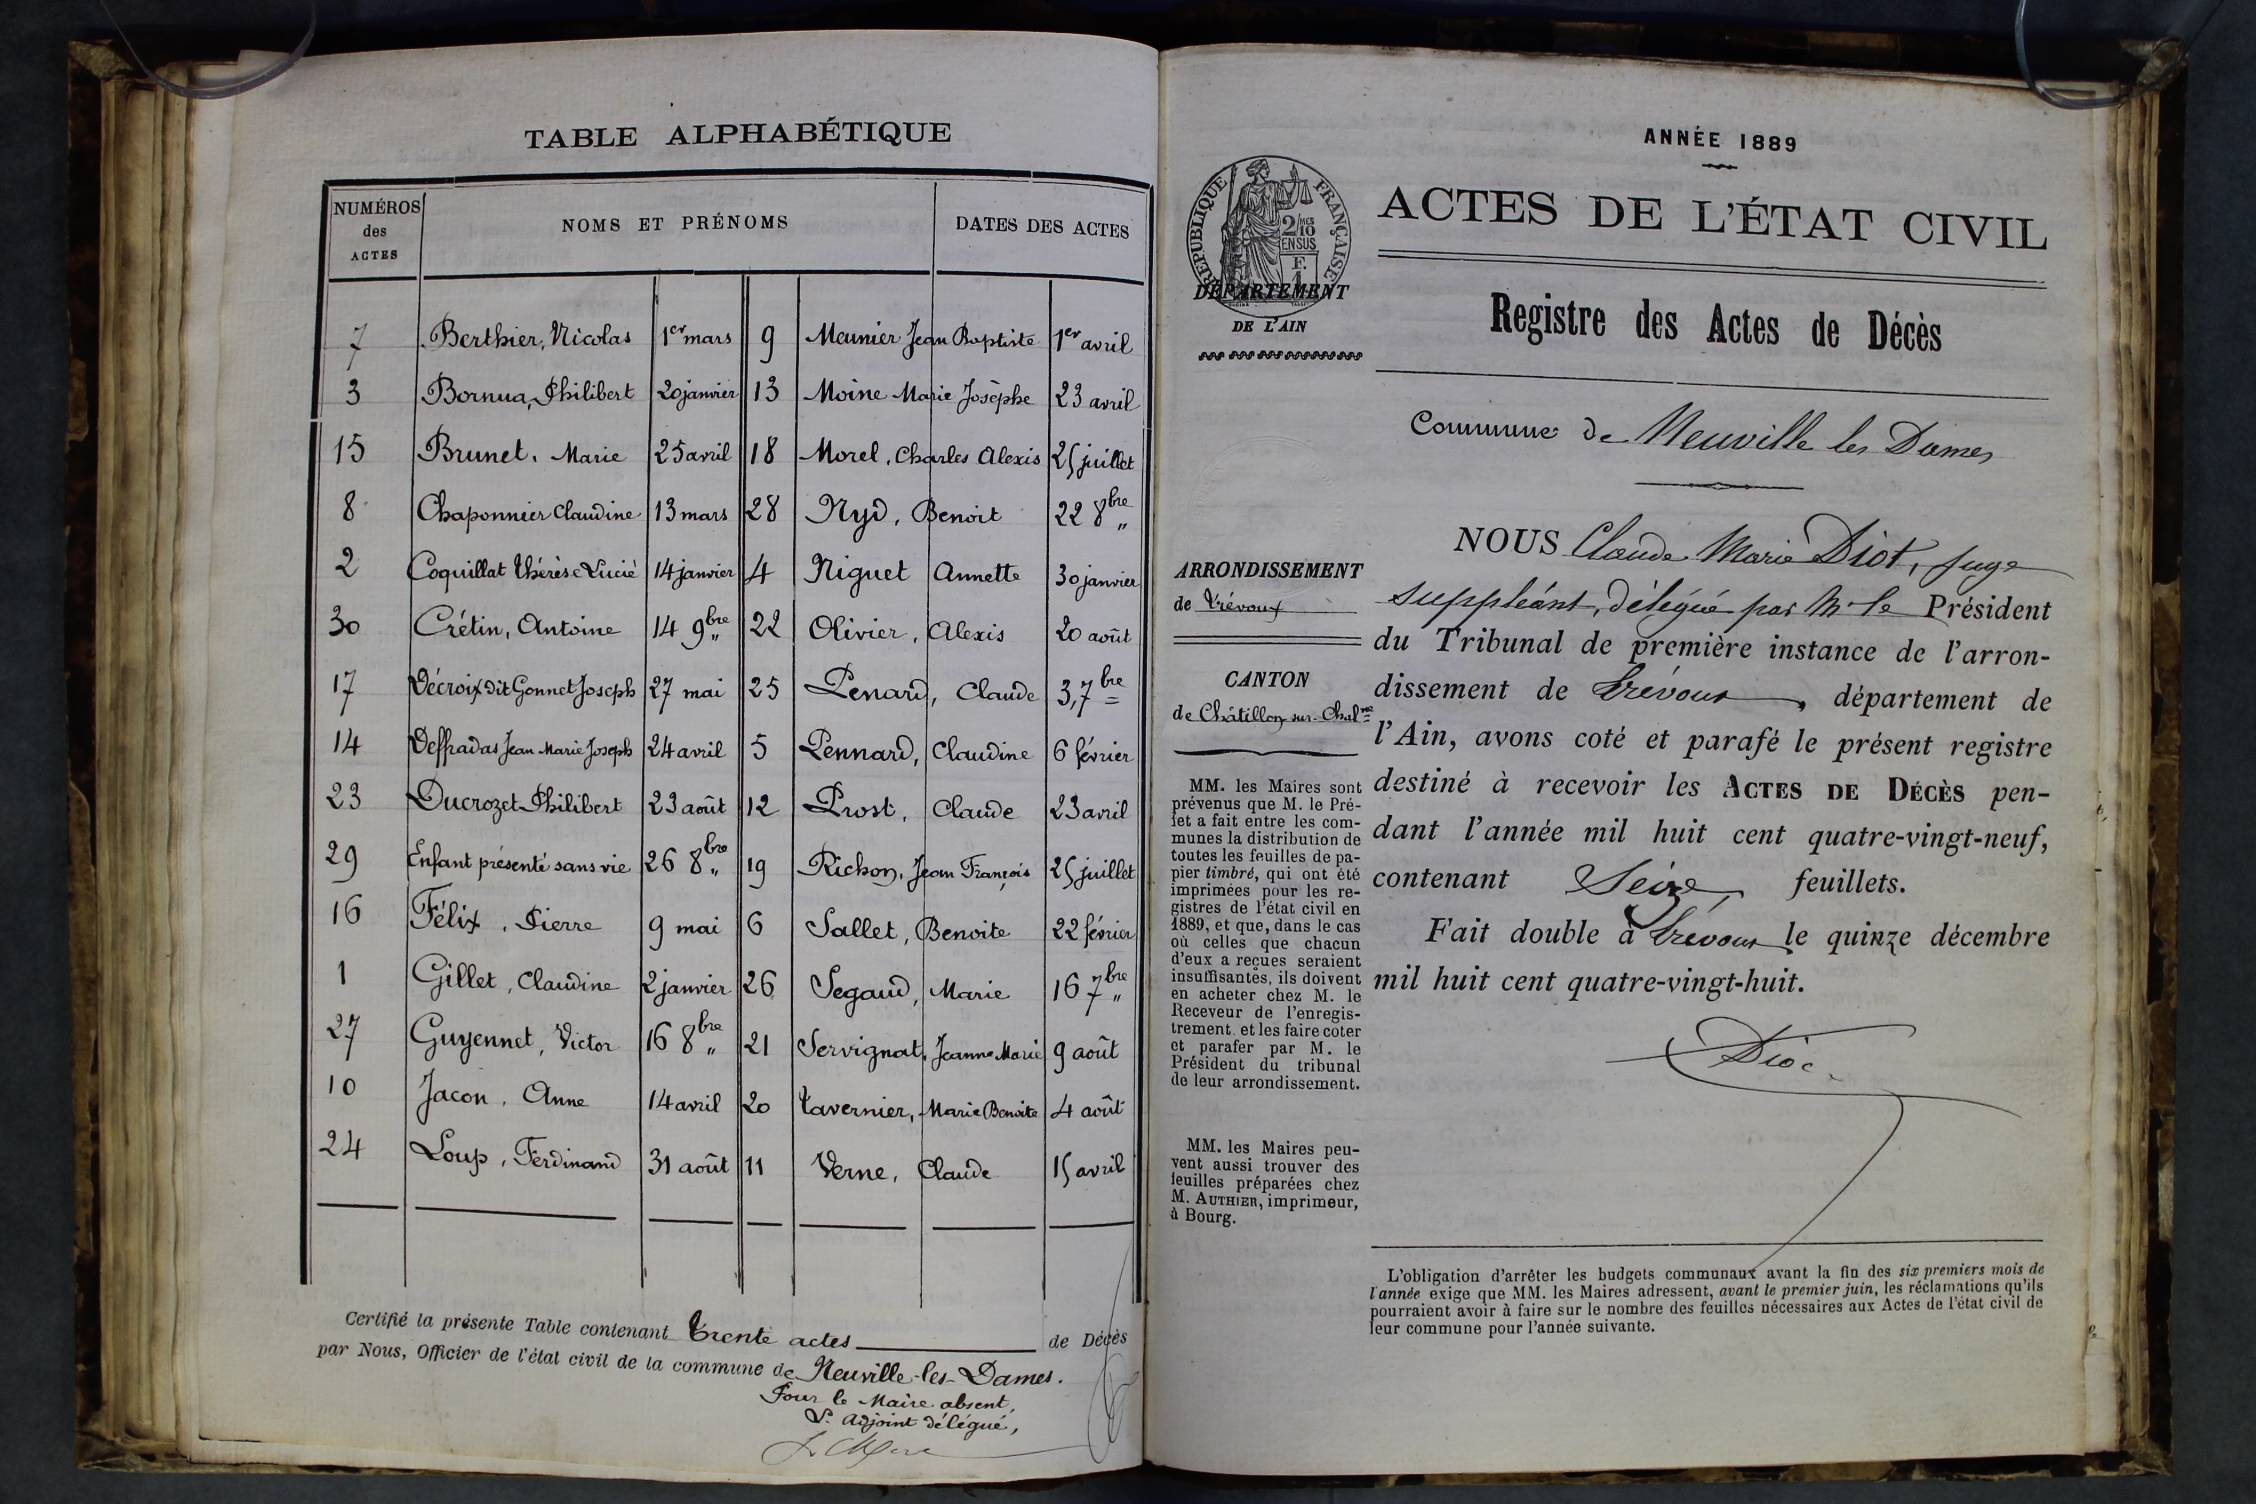 TABLE ALPHABÉTIQUE
NUMÉROS des ACTES
NOMS ET PRÉNOMS
DATES DES ACTES
7 Berthier, Nicolas 1er mars 9 Meunier Jean Baptiste 1er avril
3 Bornua, Philibert 20 janvier 13 Moine Marie Josèphe 23 avril
15 Brunet, Marie 25 avril 18 Morel, Charles Alexis 25 juillet
8 Chaponnier Claudine 13 mars 28 Nyd, Benoit 22 8bre
2 Coquillat Thérèse Lucie 14 janvier 4 Niguet Annette 30 janvier
30 Crétin, Antoine 14 9bre 22 Olivier, Alexis 20 août
17 Décroix dit Gonnet Joseph 27 mai 25 Penard, Claude 3, 7bre
14 Deffradas Jean Marie Joseph 24 avril 5 Pennard, Claudine 6 février
23 Ducrozet Philibert 23 août 12 Prost, Claude 23 avril
29 Enfant présenté sans vie 26 8bre 19 Richon, Jean François 25 juillet
16 Félix, Pierre 9 mai 6 Sallet, Benoite 22 février
1 Gillet, Claudine 2 janvier 26 Segaud, Marie 16 7bre
27 Guyennet, Victor 16 8bre 21 Servignat, Jeanne Marie 9 août
10 Jacon, Anne 14 avril 20 Tavernier, Marie Benoite 4 août
24 Loup, Ferdinand 31 août 11 Verne, Claude 15 avril
Certifié la présente Table contenant Trente actes de Décès
par Nous, Officier de l'état civil de la commune de Neuville-les-Dames.
Pour le Maire absent,
L'adjoint délégué,
ANNÉE 1889
RÉPUBLIQUE FRANÇAISE
2/10 MES
EN SUS
F.
1
DÉPARTEMENT
DE L'AIN
ACTES DE L'ÉTAT CIVIL
Registre des Actes de Décès
Commune de Neuville les Dames
ARRONDISSEMENT
de Trévoux
CANTON
de Châtillon-sur-Chalne
MM. les Maires sont
prévenus que M. le Pré-
fet a fait entre les com-
munes la distribution de
toutes les feuilles de pa-
pier timbré, qui ont été
imprimées pour les re-
gistres de l'état civil en
1889, et que, dans le cas
où celles que chacun
d'eux a reçues seraient
insuffisantes, ils doivent
en acheter chez M. le
Receveur de l'enregis-
trement et les faire coter
et parafer par M. le
Président du tribunal
de leur arrondissement.
MM. les Maires peu-
vent aussi trouver des
feuilles préparées chez
M. AUTHIER, imprimeur,
à Bourg.
NOUS Claude Marie Diot, Juge
suppléant, délégué par Mr le Président
du Tribunal de première instance de l'arron-
dissement de Trévoux, département de
l'Ain, avons coté et parafé le présent registre
destiné à recevoir les ACTES DE DÉCÈS pen-
dant l'année mil huit cent quatre-vingt-neuf,
contenant Seize feuillets.
Fait double à Trévoux le quinze décembre
mil huit cent quatre-vingt-huit.
Diot
L'obligation d'arrêter les budgets communaux avant la fin des six premiers mois de
l'année exige que MM. les Maires adressent, avant le premier juin, les réclamations qu'ils
pourraient avoir à faire sur le nombre des feuilles nécessaires aux Actes de l'état civil de
leur commune pour l'année suivante.